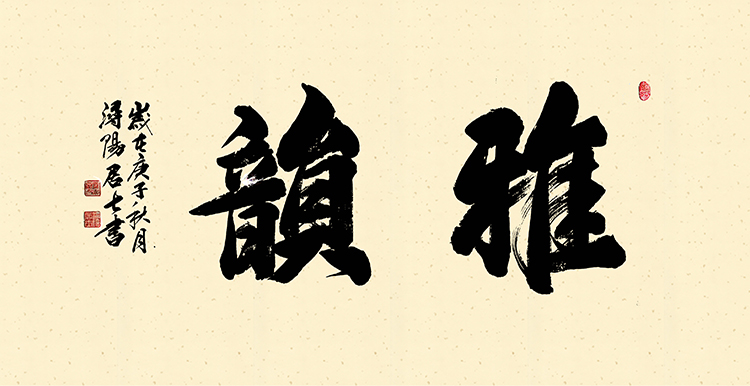 雅韻
歲在庚子秋月
潯陽居士書